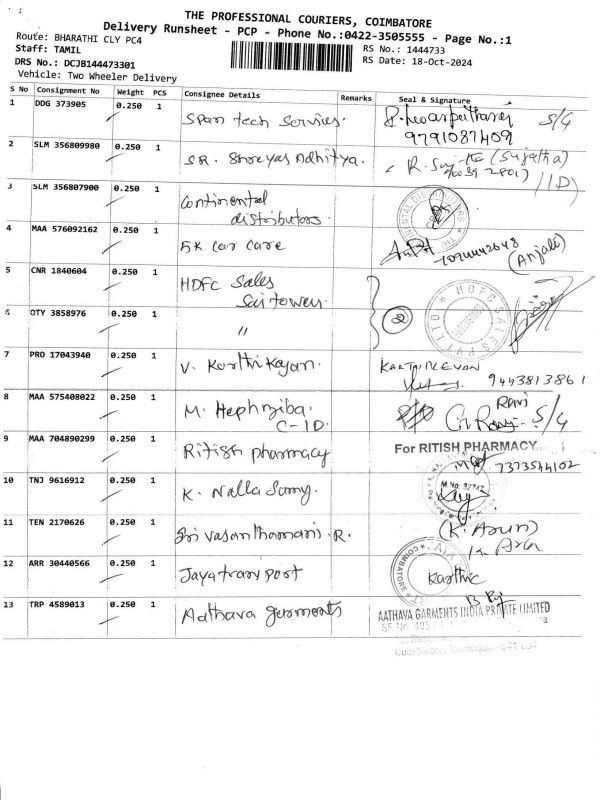 THE PROFESSIONAL COURIERS, COIMBATORE
Delivery Runsheet - PCP - Phone No.:0422-3505555 - Page No.:1
Route: BHARATHI CLY PC4
RS No.: 1444733
Staff: TAMIL
RS Date: 18-Oct-2024
DRS No.: DCJB144473301
Vehicle: Two Wheeler Delivery
S No Consignment No Weight PCS Consignee Details Remarks Seal & Signature
1 DDG 373905 0.250 1 Span tech Services. S/G
9791087409
2 SLM 356809980 0.250 1 SR. Shreyas Adhitya. (Sujatha)
3 SLM 356807900 0.250 1 Continental
distributors.
4 MAA 576092162 0.250 1 5K car care (Anjali)
5 CNR 1840604 0.250 1 HDFC Sales
Sai towers
HDFC SALES PVT LTD
6 OTY 3858976 0.250 1 "
7 PRO 17043940 0.250 1 V. Karthikayan. KARTHIKEYAN
9443813861
8 MAA 575408022 0.250 1 M. Hephziba. Ravi S/G
C-1D.
9 MAA 704890299 0.250 1 Ritish pharmacy For RITISH PHARMACY
7373544102
10 TNJ 9616912 0.250 1 K. Nalla Samy.
11 TEN 2170626 0.250 1 Sri vasanthamani. R. (K. Arun)
12 ARR 30440566 0.250 1 Jayatranport Karthic
COIMBATORE
13 TRP 4589013 0.250 1 Aathava garments
AATHAVA GARMENTS INDIA PRIVATE LIMITED